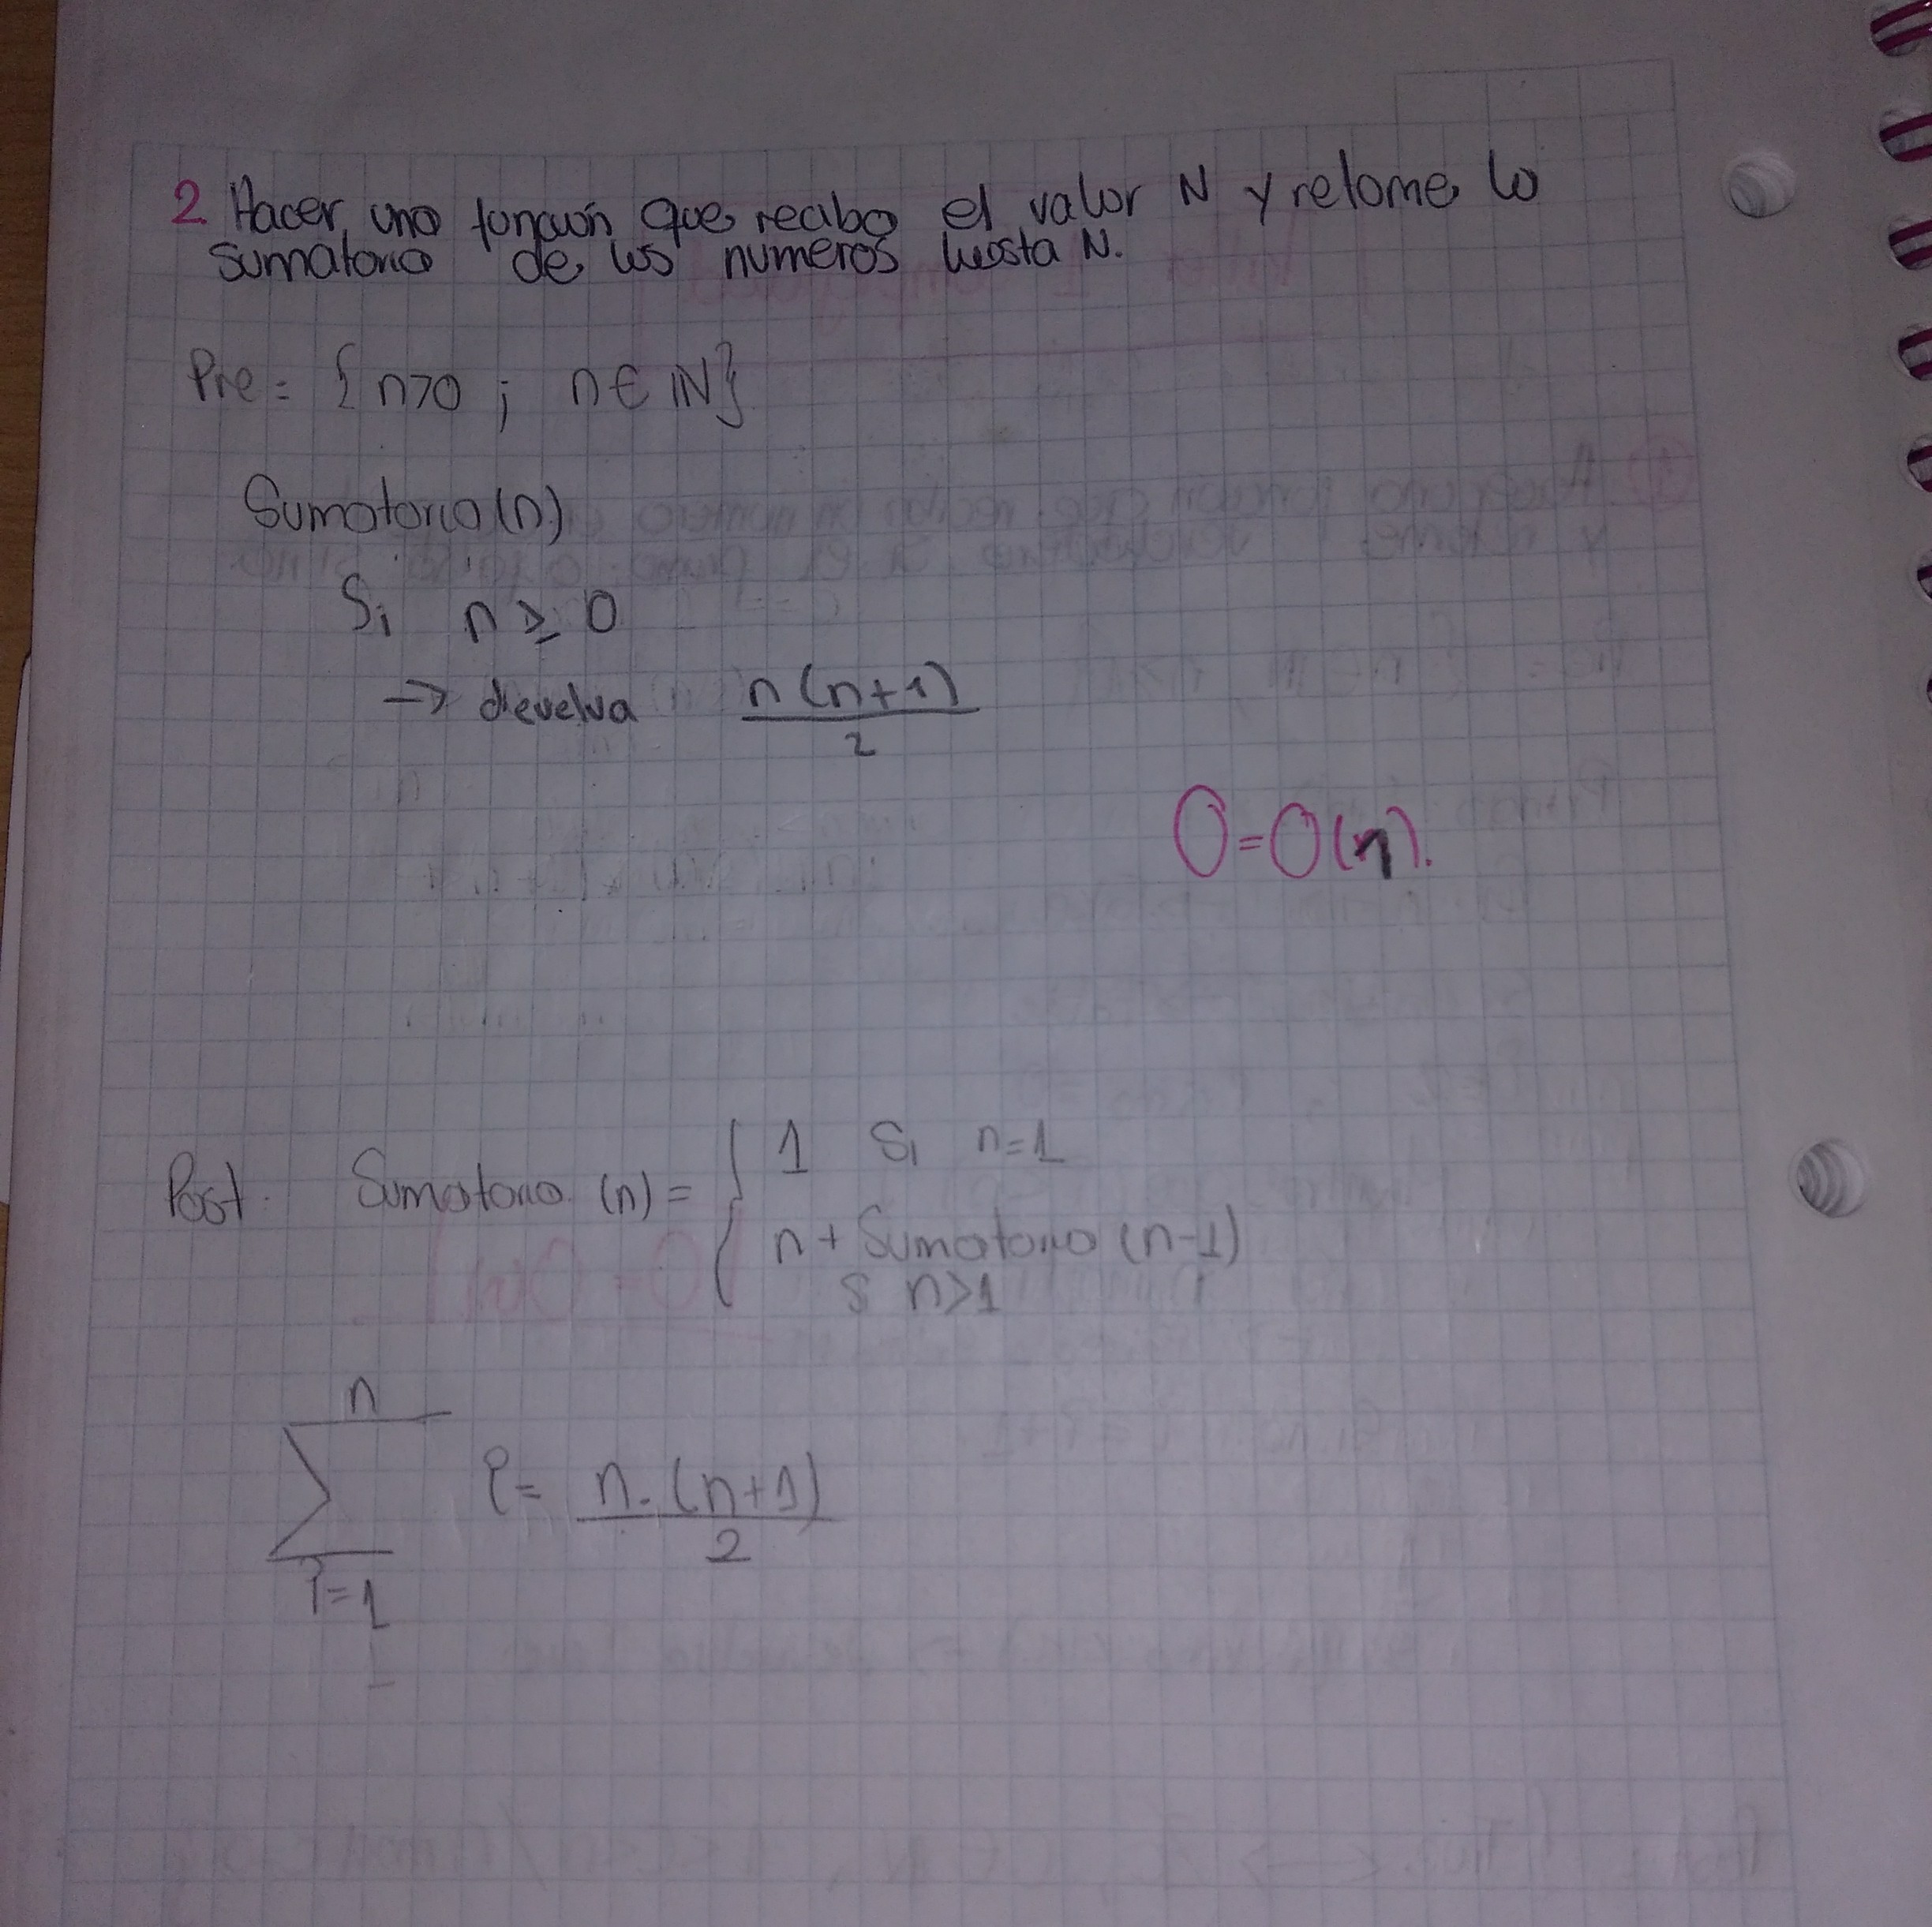 2. Hacer una función que reciba el valor N y retorne la
sumatoria de los numeros hasta N.
Pre = { n>0 ; n ∈ ℕ}
Sumatoria (n)
Si n ≥ 0
→ develva n(n+1)/2
O=O(n).
Post. Sumatoria (n) = { 1 Si n=1
n + Sumatoria (n-1)
s n>1
n
∑ i = n.(n+1)/2
i=1